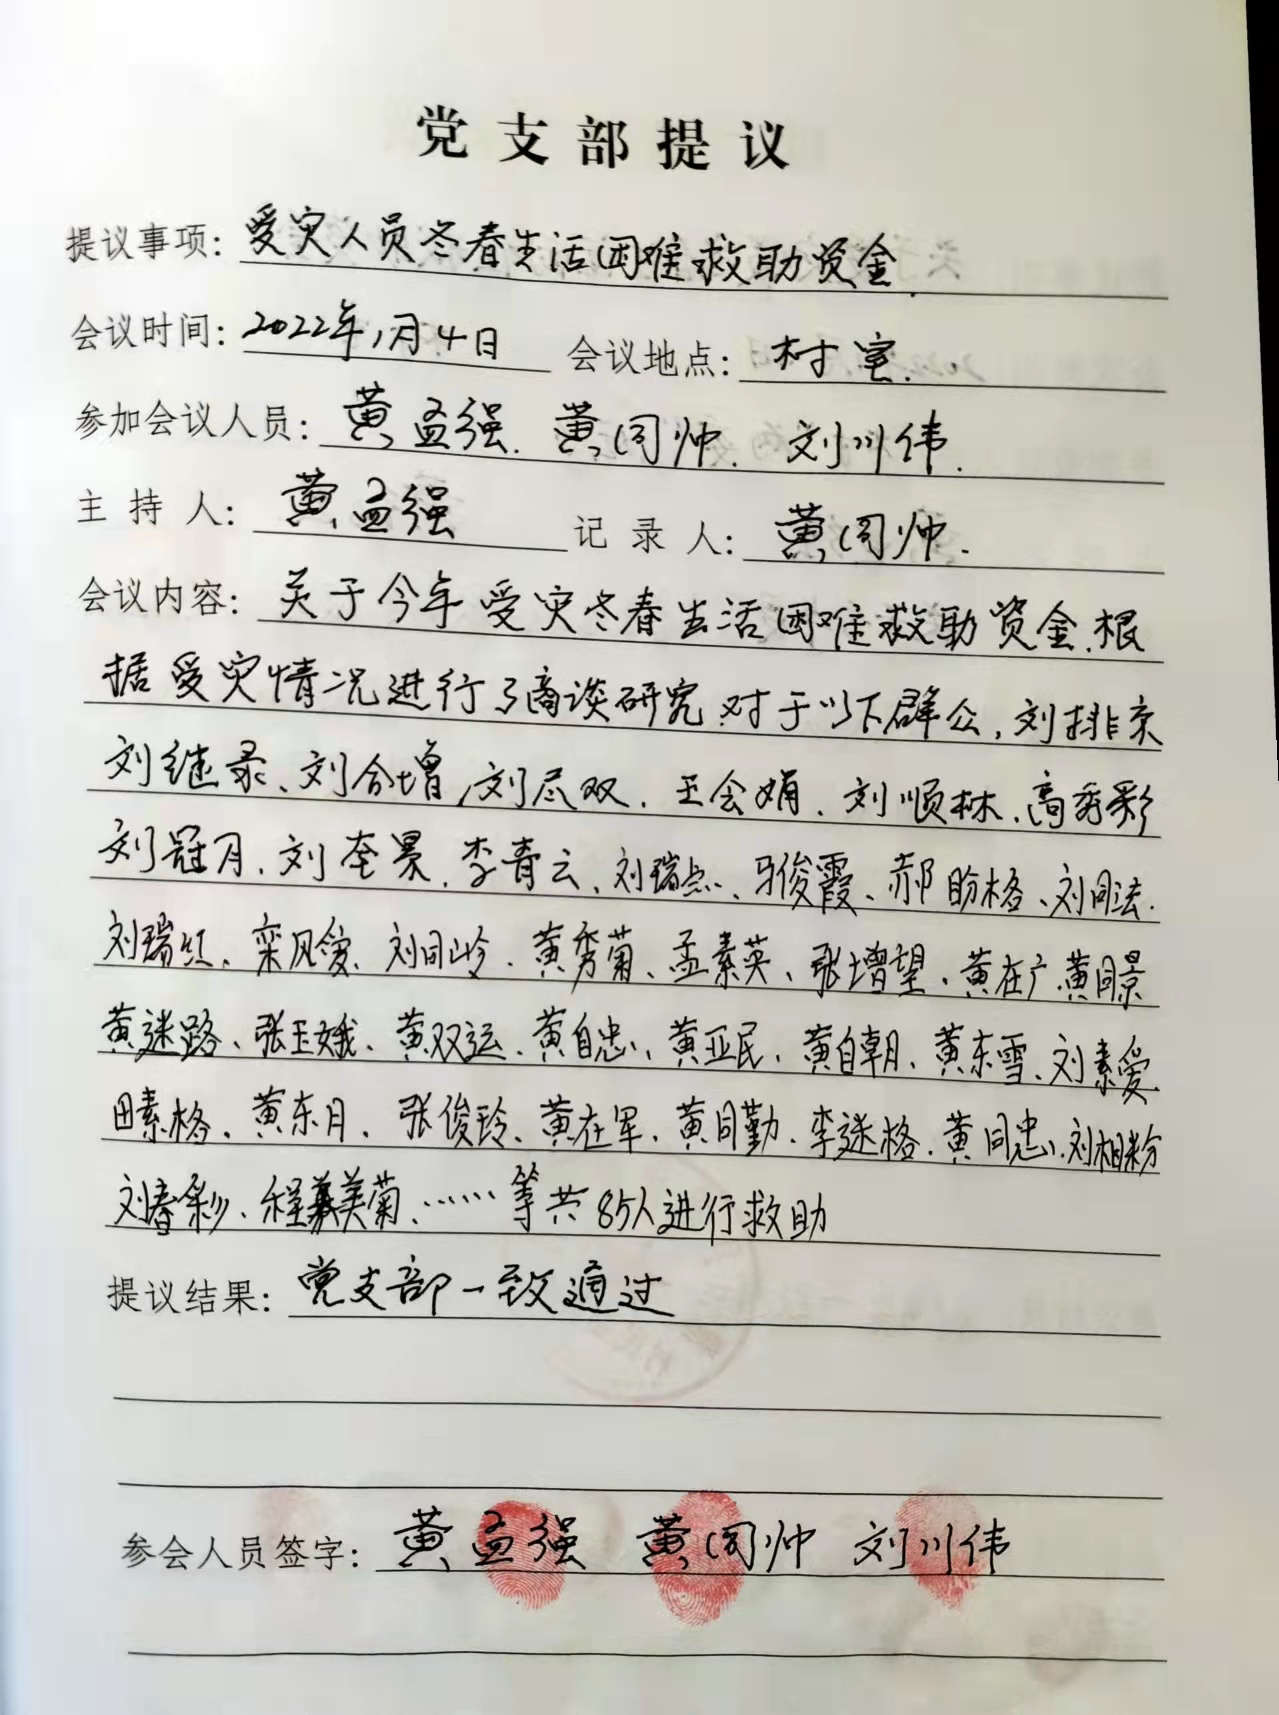 党支部提议
提议事项：受灾人员冬春生活困难救助资金.
会议时间：2022年1月4日 会议地点：村室.
参加会议人员：黄孟强. 黄同帅. 刘川伟.
主持人：黄孟强 记录人：黄同帅.
会议内容：关于今年受灾冬春生活困难救助资金.根
据受灾情况进行了商谈研究.对于以下群众，刘排京
刘继录、刘合增，刘尽双．王会娟．刘顺林．高秀彩
刘冠月．刘奎景．李青云、刘瑞点、马俊霞、郝盼格、刘同法.
刘瑞红、栾风爱、刘同岭．黄秀菊、孟素英、张增望、黄在广．黄同景
黄迷路、张玉娥、黄双运、黄自忠、黄亚民、黄自朝、黄东雪、刘素爱
田素格、黄东月、张俊玲、黄在军．黄同勤．李迷格．黄同忠、刘相粉
刘春彩、程美菊、……等共85人进行救助
提议结果：党支部一致通过
参会人员签字：黄孟强 黄同帅 刘川伟